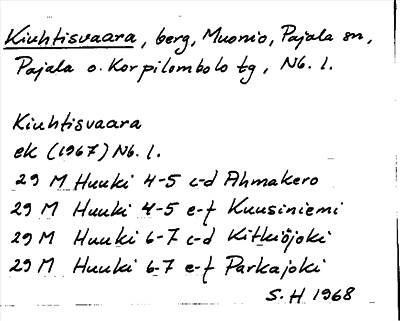 Kiuhtisvaara, berg, Muonio, Pajala sn,
Pajala o. Korpilombolo tg, Nb. l.
Kiuhtisvaara
ek (1967) Nb. l.
29 M Huuki 4-5 c-d Ahmakero
29 M Huuki 4-5 e-f Kuusiniemi
29 M Huuki 6-7 c-d Kitkiöjoki
29 M Huuki 6-7 e-f Parkajoki
S. H 1968